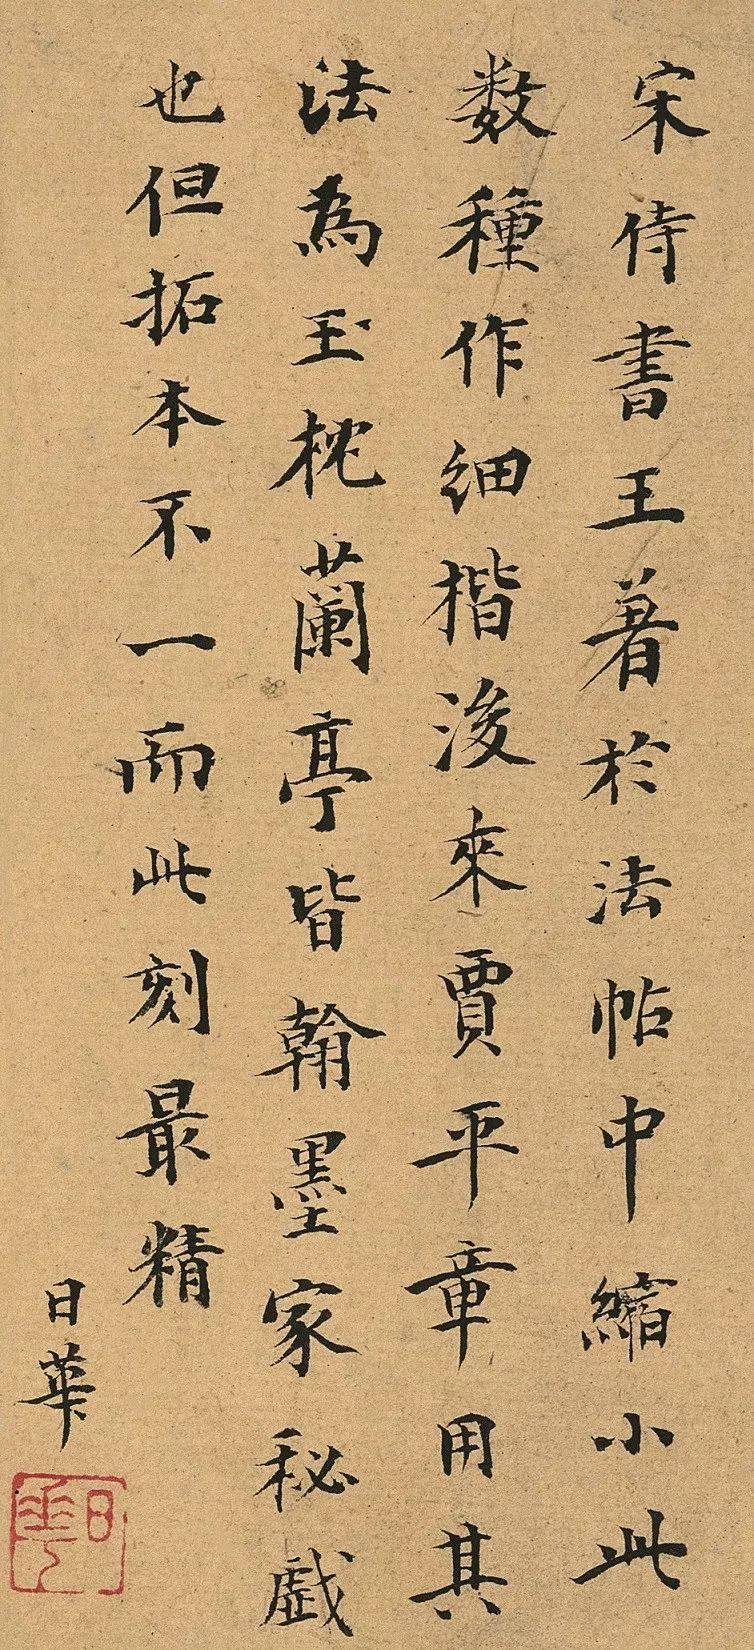 宋侍書王著於法帖中縮小此
数種作细楷後來賈平章用其
法為玉枕蘭亭皆翰墨家秘戯
也但拓本不一而此刻最精
日華
日華